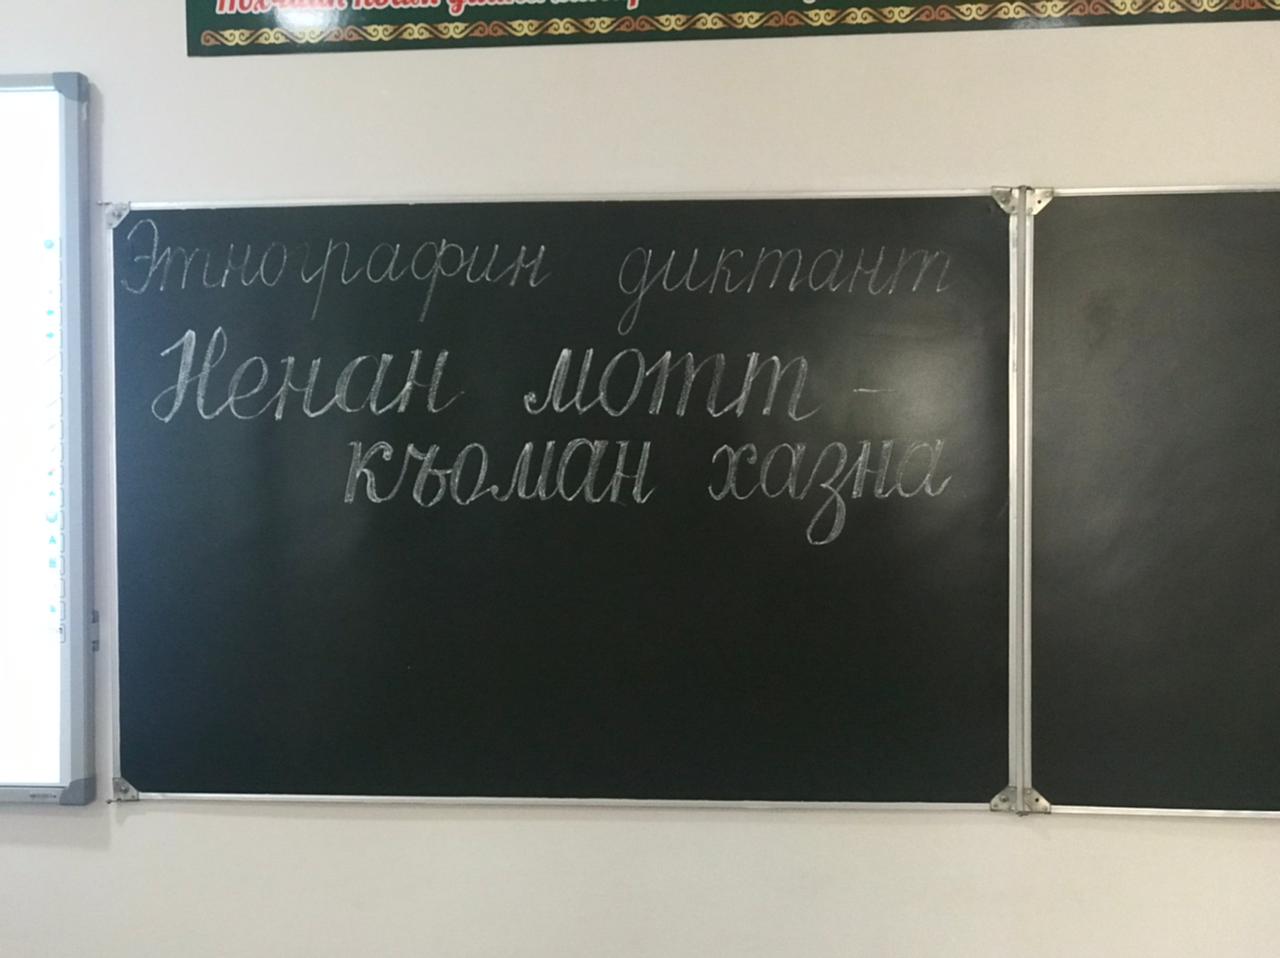 Этнографин диктант
Ненан мотт -
къоман хазна